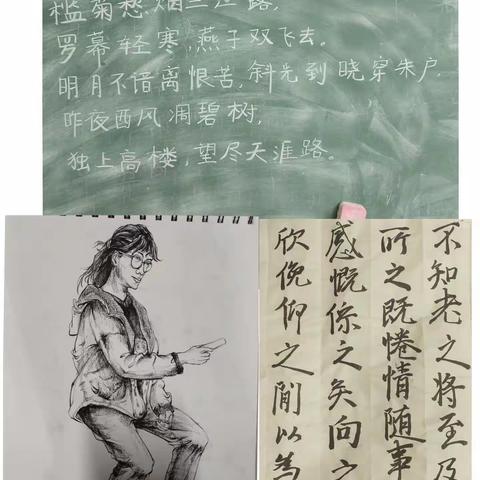 槛菊愁烟兰泣露,
罗幕轻寒,燕子双飞去。
明月不谙离恨苦,斜光到晓穿朱户,
昨夜西风凋碧树,
独上高楼,望尽天涯路。
不知老之将至及
所之既惓情随事
感慨係之矣向之
欣俛仰之間以為